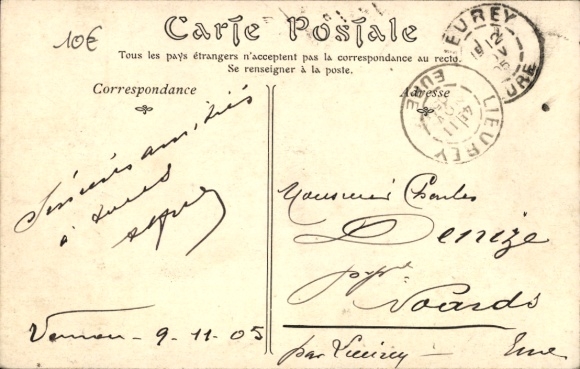 10€
Carte Postale
Tous les pays étrangers n'acceptent pas la correspondance au recto.
Se renseigner à la poste.
Correspondance
Adresse
LIEUREY
EURE
LIEUREY
EURE
Sincères amitiés
à tous
Vernon - 9-11-05
Monsieur Charles
Denize
ppre
Noards
par Lieurey — Eure